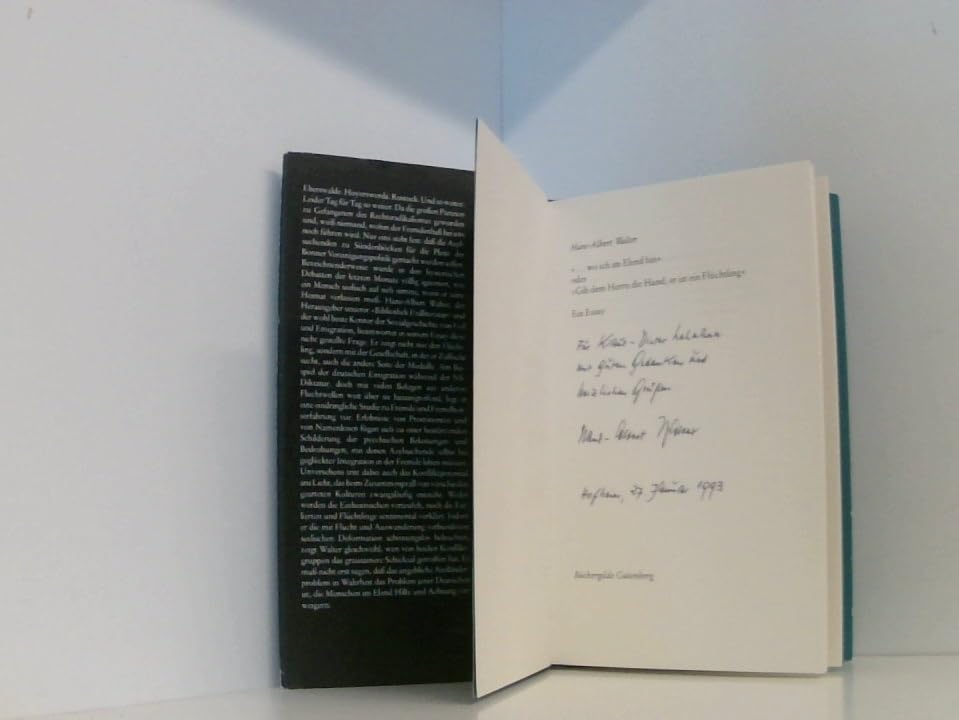 Eberswalde. Hoyerswerda. Rostock. Und so weiter.
Leider Tag für Tag so weiter. Da die großen Parteien
zu Gefangenen des Rechtsradikalismus geworden
sind, weiß niemand, wohin der Fremdenhaß bei uns
noch führen wird. Nur eins steht fest: daß die Asyl-
suchenden zu Sündenböcken für die Pleite der
Bonner Vereinigungspolitik gemacht werden sollen.
Bezeichnenderweise wurde in den hysterischen
Debatten der letzten Monate völlig ignoriert, was
ein Mensch seelisch auf sich nimmt, wenn er seine
Heimat verlassen muß. Hans-Albert Walter, der
Herausgeber unserer »Bibliothek Exilliteratur« und
der wohl beste Kenner der Sozialgeschichte von Exil
und Emigration, beantwortet in seinem Essay diese
nicht gestellte Frage. Er zeigt nicht nur dem Flücht-
ling, sondern mit der Gesellschaft, in der er Zuflucht
sucht, auch die andere Seite der Medaille. Am Bei-
spiel der deutschen Emigration während der NS-
Diktatur, doch mit vielen Belegen aus anderen
Fluchtwellen weit über sie hinausgreifend, legt er
eine eindringliche Studie zu Fremde und Fremdheits-
erfahrung vor. Erlebnisse von Prominenten und
von Namenlosen fügen sich zu einer
Schilderung der psychischen Belastungen und
Bedrohungen, mit denen Asylsuchende selbst bei
geglückter Integration in der Fremde leben müssen.
Unversehens tritt dabei auch das Konfliktpotential
ans Licht, das beim Zusammenprall von verschieden
gearteten Kulturen zwangsläufig entsteht. Weder
werden die Einheimischen verteufelt, noch die Exi-
lierten und Flüchtlinge sentimental verklärt. Indem
er die mit Flucht und Auswanderung verbundenen
seelischen Deformation schonungslos beleuchtet,
zeigt Walter gleichwohl, wen von beiden Konflikt-
gruppen das grausamere Schicksal getroffen hat. Er
muß nicht erst sagen, daß das angebliche Ausländer-
problem in Wahrheit das Problem jener Deutschen
ist, die Menschen im Elend Hilfe und Achtung ver-
weigern.
Hans-Albert Walter
»... wo ich im Elend bin«
oder
»Gib dem Herrn die Hand, er ist ein Flüchtling«
Ein Essay
Für Klaus-Dieter
mit guten Gedanken und
herzlichen Grüßen
Hans-Albert Walter
Hofheim, 27. Januar 1993
Büchergilde Gutenberg